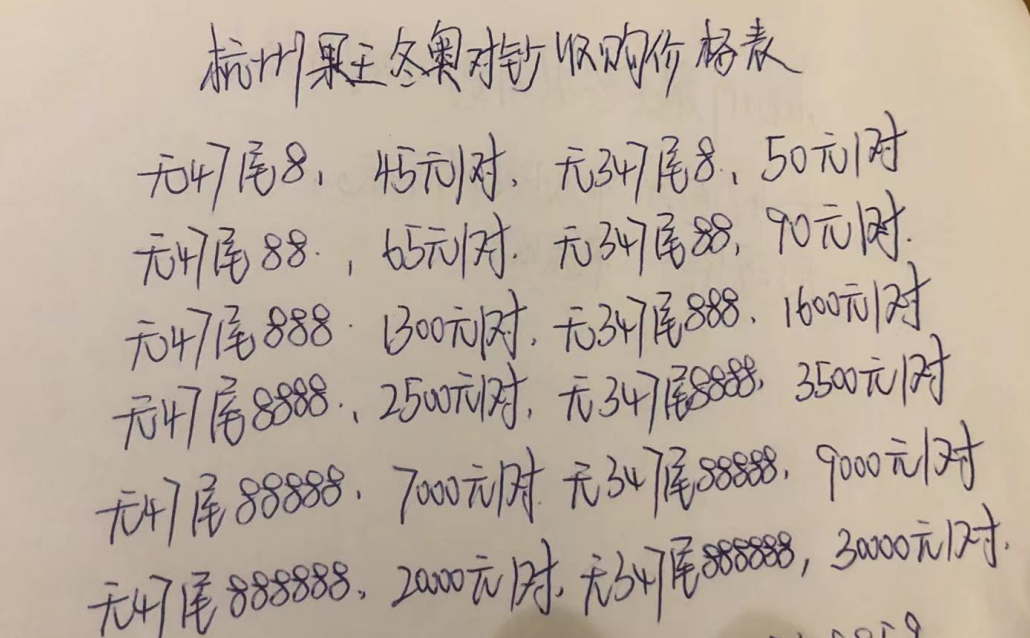 杭州果王冬奥对钞收购价格表
无47尾8, 45元/对, 无347尾8, 50元/对
无47尾88, 65元/对, 无347尾88, 90元/对.
无47尾888. 1300元/对, 无347尾888. 1600元/对
无47尾8888, 2500元/对, 无347尾8888, 3500元/对
无47尾88888, 7000元/对 无347尾88888, 9000元/对
无47尾888888, 20000元/对, 无347尾888888, 30000元/对.